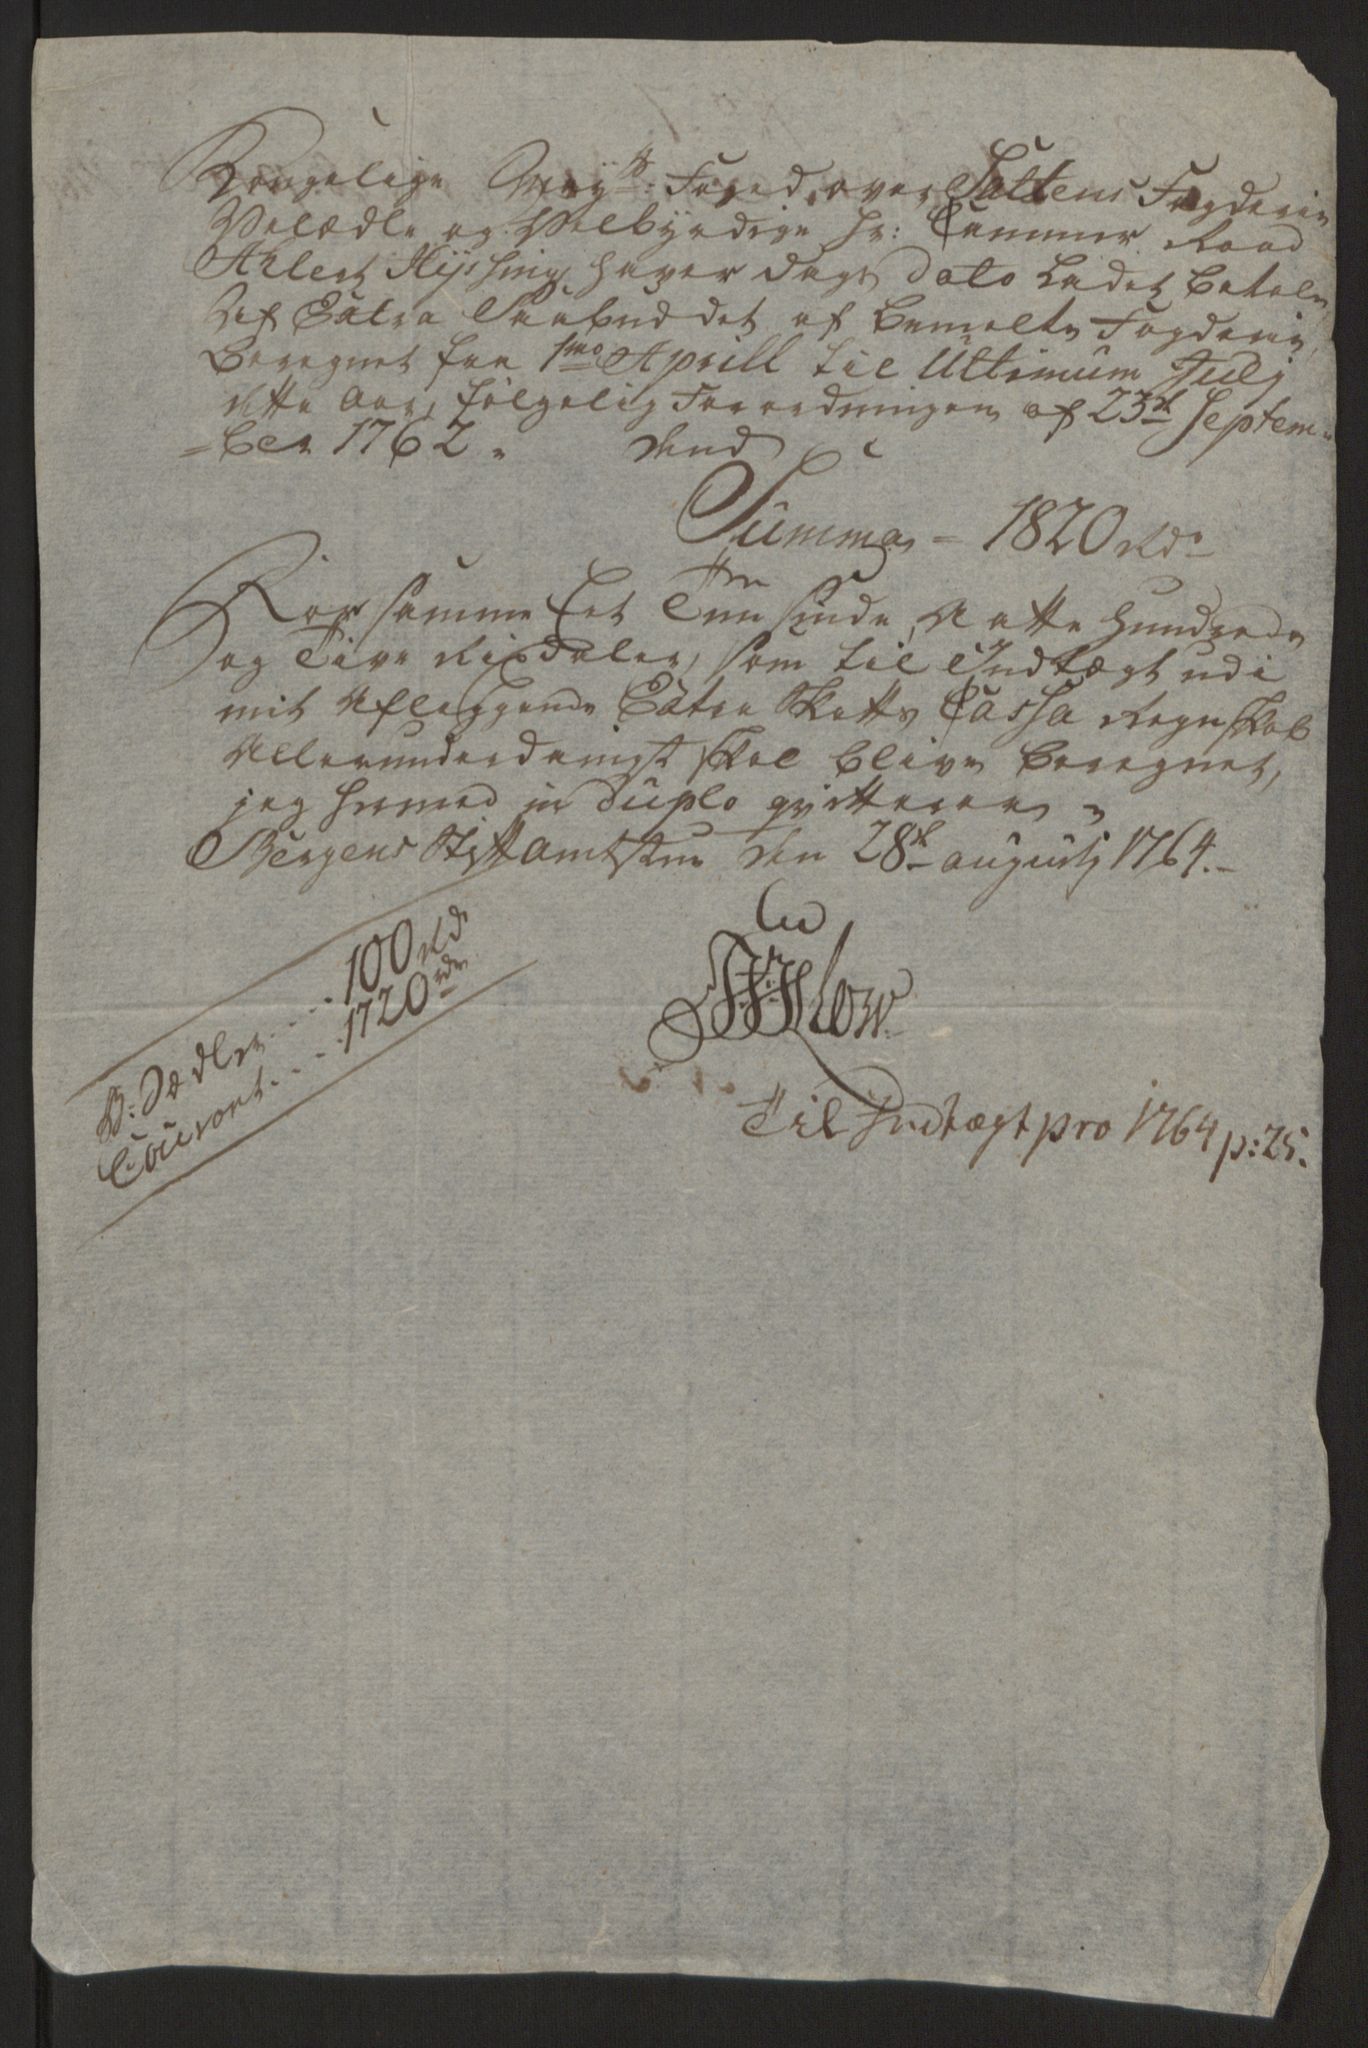 Kongelige May:ts Foged over Saltens Fogderie
Velædle og Velbyrdige Hr: Cammer Raad
Ahlert Hysing haver dags dato ladet betale
Af Extra Paabuddet af bemelte Fogderie,
beregnet fra 1mo Aprill til Ultimum Julij
dette Aar, følgelig Forordningen af 23de Septem=
=ber 1762. den
Summa = 1820 Rdr
For samme Eet Tusinde, Aatte Hundrede
og Tive Rixdaler, som til Indtægt udi
mit Aflæggende Extra Skatts Cassa Regnskab
Allerunderdanigst skal blive beregnet,
jeg hermed in Duplo qvitterer
Bergens Stiftamtstue den 28de augustj 1764.
Low
B: Sedler .... 100 Rdr
Courant .... 1720 rdr
Til Indtægt pro 1764 p: 25.